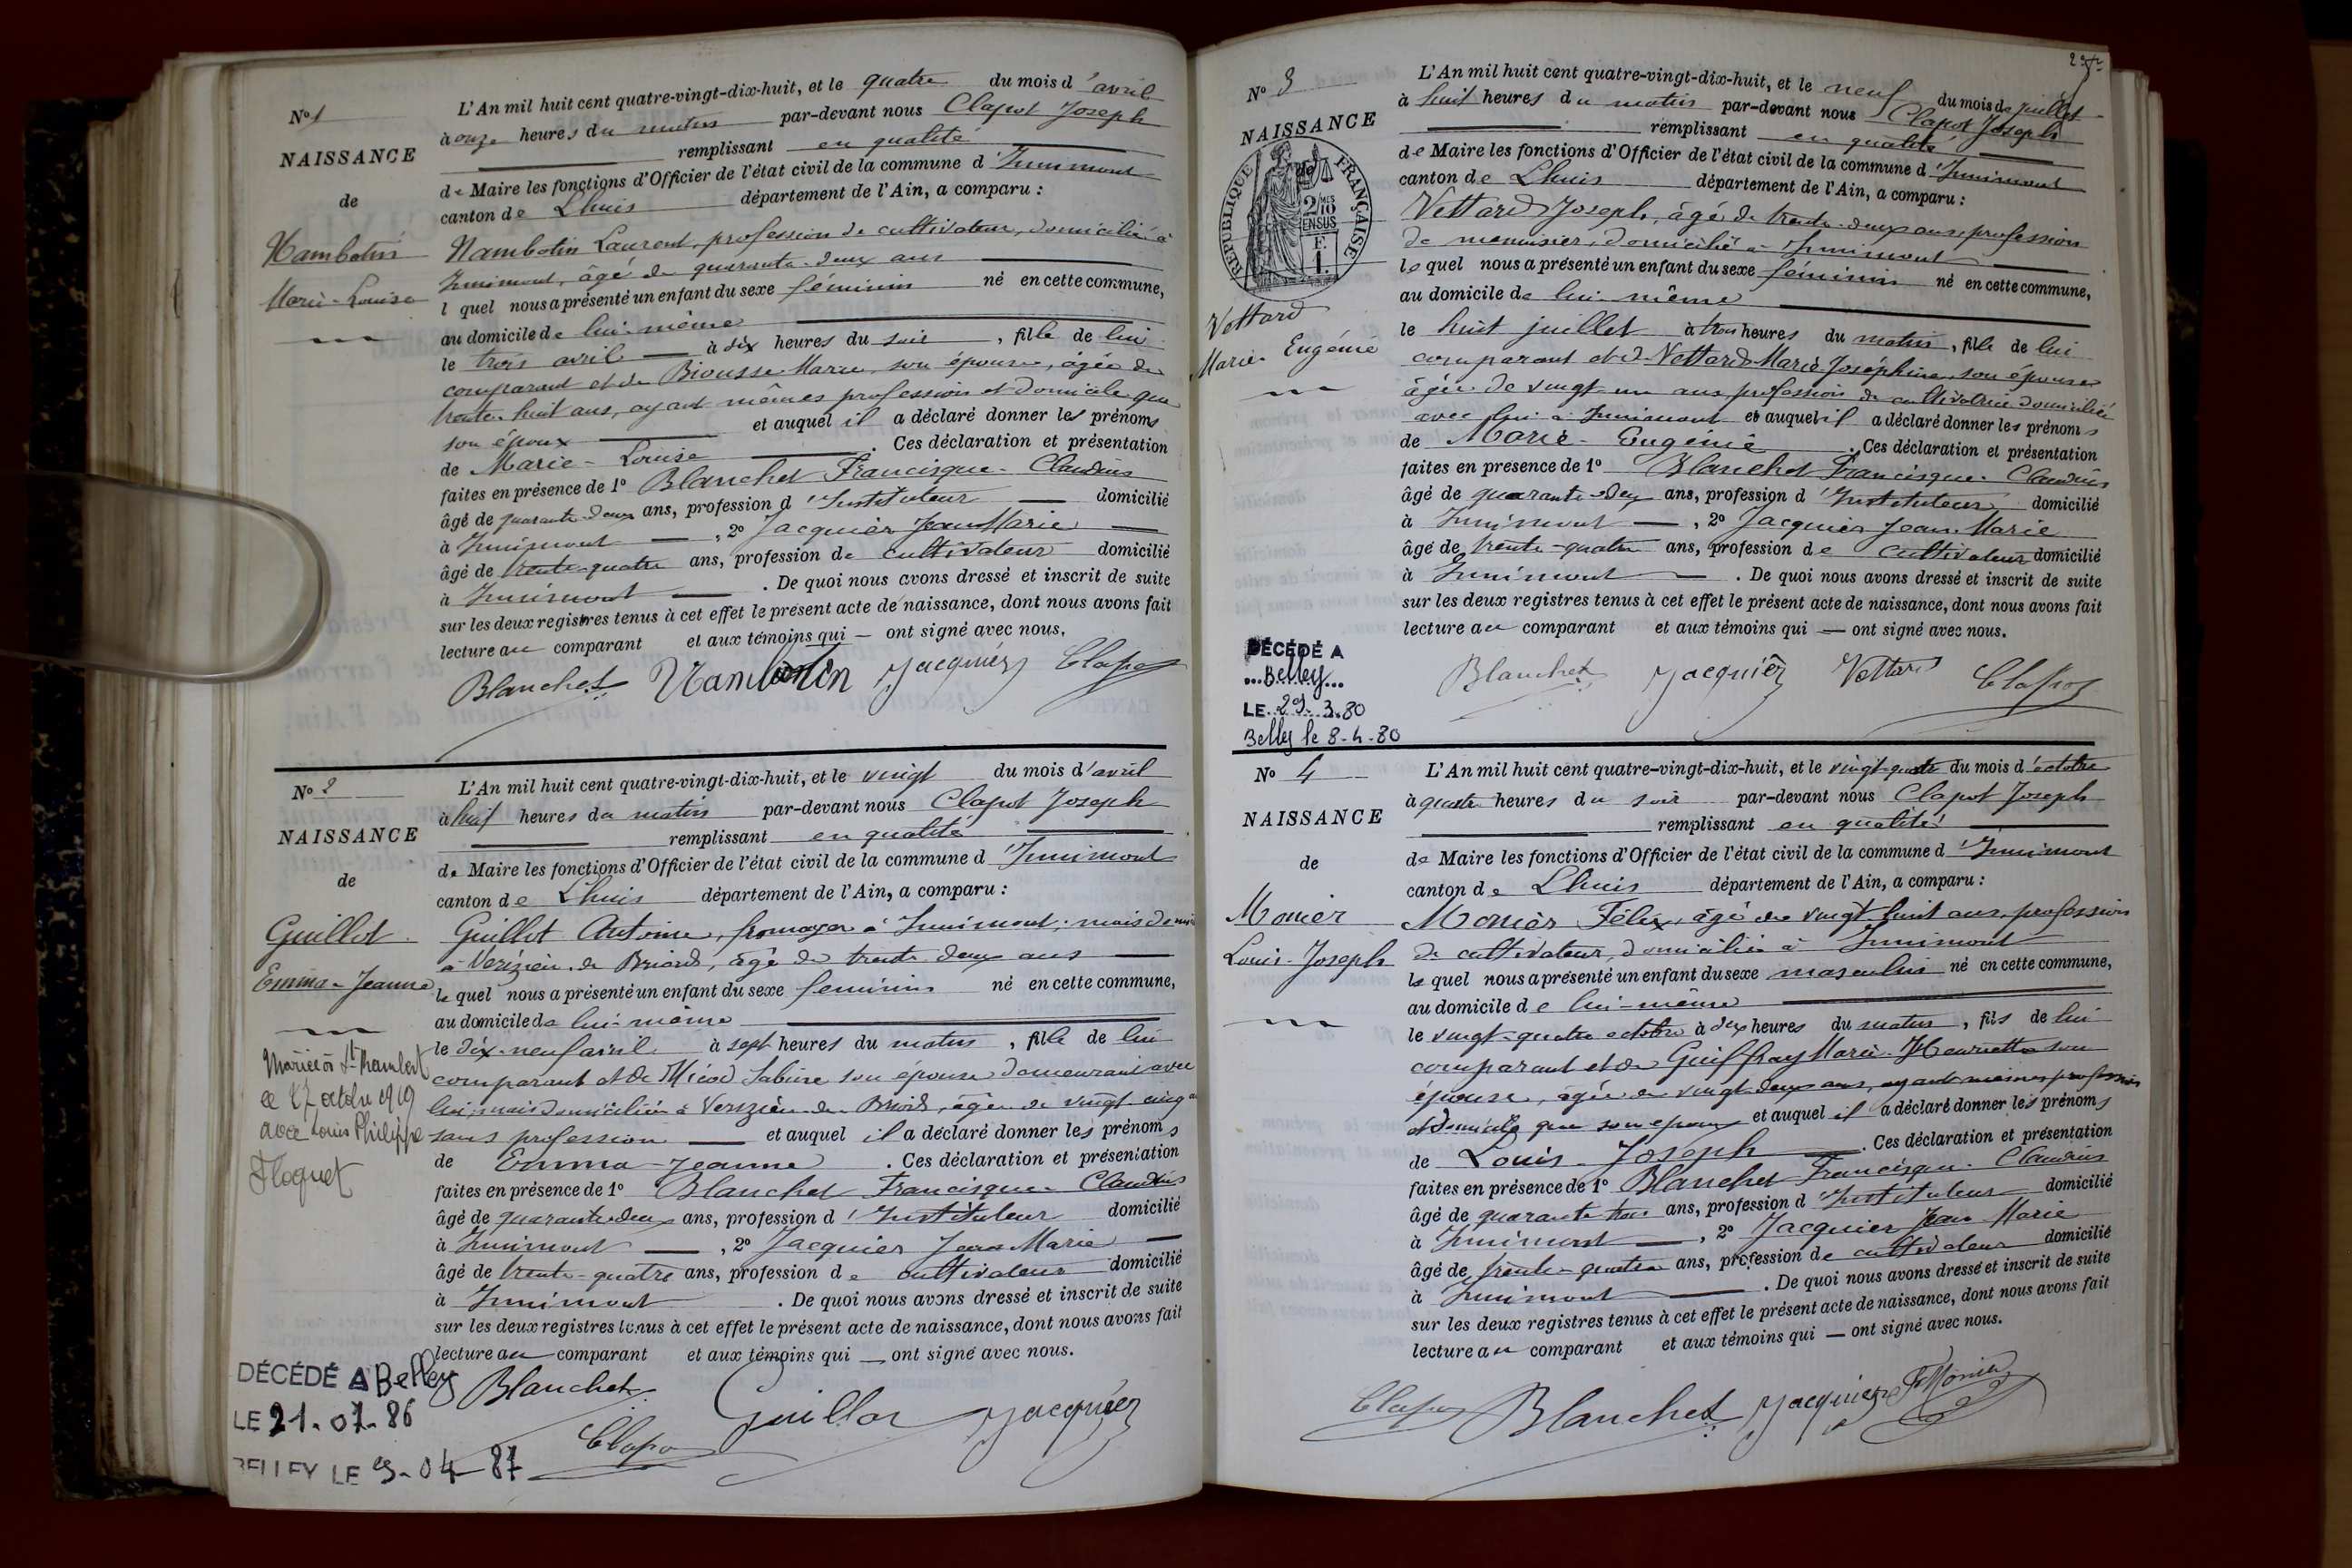 N° 1
NAISSANCE
de
Nambotin
Marie-Louise
L'An mil huit cent quatre-vingt-dix-huit, et le quatre du mois d'avril
à onze heures du matin par-devant nous Clapot Joseph
remplissant en qualité
de Maire les fonctions d'Officier de l'état civil de la commune d'Innimont
canton de Lhuis département de l'Ain, a comparu :
Nambotin Laurent, profession de cultivateur, domicilié à
Innimont, âgé de quarante-deux ans
l quel nous a présenté un enfant du sexe féminin né en cette commune,
au domicile de lui-même
le trois avril à dix heures du soir, fille de lui
comparant et de Biousse Marie, son épouse, âgée de
trente-huit ans, ayant mêmes profession et domicile que
son époux et auquel il a déclaré donner les prénoms
de Marie-Louise. Ces déclaration et présentation
faites en présence de 1° Blanchet Francisque-Claudius
âgé de quarante-deux ans, profession d'Instituteur domicilié
à Innimont, 2° Jacquier Jean Marie
âgé de trente-quatre ans, profession de cultivateur domicilié
à Innimont. De quoi nous avons dressé et inscrit de suite
sur les deux registres tenus à cet effet le présent acte de naissance, dont nous avons fait
lecture au comparant et aux témoins qui — ont signé avec nous.
Blanchet Nambotin Jacquier Clapot
N° 2
NAISSANCE
de
Guillot
Emma-Jeanne
Mariée à St-Rambert
le 27 octobre 1919
avec Louis Philippe
Floquet
L'An mil huit cent quatre-vingt-dix-huit, et le vingt du mois d'avril
à huit heures du matin par-devant nous Clapot Joseph
remplissant en qualité
de Maire les fonctions d'Officier de l'état civil de la commune d'Innimont
canton de Lhuis département de l'Ain, a comparu :
Guillot Antoine, fromager à Innimont; mais
à Verizieu de Briord, âgé de trente deux ans
le quel nous a présenté un enfant du sexe feminin né en cette commune,
au domicile de lui-même
le dix-neuf avril à sept heures du matin, fille de lui
comparant et de Micod Sabine son épouse demeurant avec
lui mais domiciliée à Verizieu de Briord, âgée de vingt-cinq
sans profession et auquel il a déclaré donner les prénoms
de Emma-Jeanne. Ces déclaration et présentation
faites en présence de 1° Blanchet Francisque-Claudius
âgé de quarante-deux ans, profession d'Instituteur domicilié
à Innimont, 2° Jacquier Jean Marie
âgé de trente-quatre ans, profession de cultivateur domicilié
à Innimont. De quoi nous avons dressé et inscrit de suite
sur les deux registres tenus à cet effet le présent acte de naissance, dont nous avons fait
lecture au comparant et aux témoins qui — ont signé avec nous.
Blanchet Guillot Jacquier
Clapot
DÉCÉDÉ A Belley
LE 21-07-86
BELLEY LE 9-04-87
N° 3
NAISSANCE
de
RÉPUBLIQUE FRANÇAISE
2/10 MES
EN SUS
F.
1.
Vettard
Marie-Eugénie
L'An mil huit cent quatre-vingt-dix-huit, et le neuf du mois de juillet
à huit heures du matin par-devant nous Clapot Joseph
remplissant en qualité
de Maire les fonctions d'Officier de l'état civil de la commune d'Innimont
canton de Lhuis département de l'Ain, a comparu :
Vettard Joseph, âgé de trente-deux ans, profession
de menuisier, domicilié à Innimont
lequel nous a présenté un enfant du sexe féminin né en cette commune,
au domicile de lui-même
le huit juillet à trois heures du matin, fille de lui
comparant et de Vettard Marie-Joséphine, son épouse
âgée de vingt-un ans profession de cultivatrice domiciliée
avec lui à Innimont et auquel il a déclaré donner les prénoms
de Marie-Eugénie. Ces déclaration et présentation
faites en présence de 1° Blanchet Francisque-Claudius
âgé de quarante-deux ans, profession d'Instituteur domicilié
à Innimont, 2° Jacquier Jean-Marie
âgé de trente-quatre ans, profession de cultivateur domicilié
à Innimont. De quoi nous avons dressé et inscrit de suite
sur les deux registres tenus à cet effet le présent acte de naissance, dont nous avons fait
lecture au comparant et aux témoins qui — ont signé avec nous.
Blanchet Jacquier Vettard Clapot
DÉCÉDÉ A
Belley
LE 29.3.80
Belley le 8-4-80
N° 4
NAISSANCE
de
Monier
Louis-Joseph
L'An mil huit cent quatre-vingt-dix-huit, et le vingt-quatre du mois d'octobre
à quatre heures du soir par-devant nous Clapot Joseph
remplissant en qualité
de Maire les fonctions d'Officier de l'état civil de la commune d'Innimont
canton de Lhuis département de l'Ain, a comparu :
Monier Félix, âgé de vingt-huit ans, profession
de cultivateur, domicilié à Innimont
le quel nous a présenté un enfant du sexe masculin né en cette commune,
au domicile de lui-même
le vingt-quatre octobre à dix heures du matin, fils de lui
comparant et de Guiffray Marie-Henriette son
épouse, âgée de vingt-deux ans, ayant mêmes profession
et domicile que son époux et auquel il a déclaré donner les prénoms
de Louis-Joseph. Ces déclaration et présentation
faites en présence de 1° Blanchet Francisque-Claudius
âgé de quarante-trois ans, profession d'Instituteur domicilié
à Innimont, 2° Jacquier Jean Marie
âgé de trente-quatre ans, profession de cultivateur domicilié
à Innimont. De quoi nous avons dressé et inscrit de suite
sur les deux registres tenus à cet effet le présent acte de naissance, dont nous avons fait
lecture au comparant et aux témoins qui — ont signé avec nous.
Clapot Blanchet Jacquier F Monier